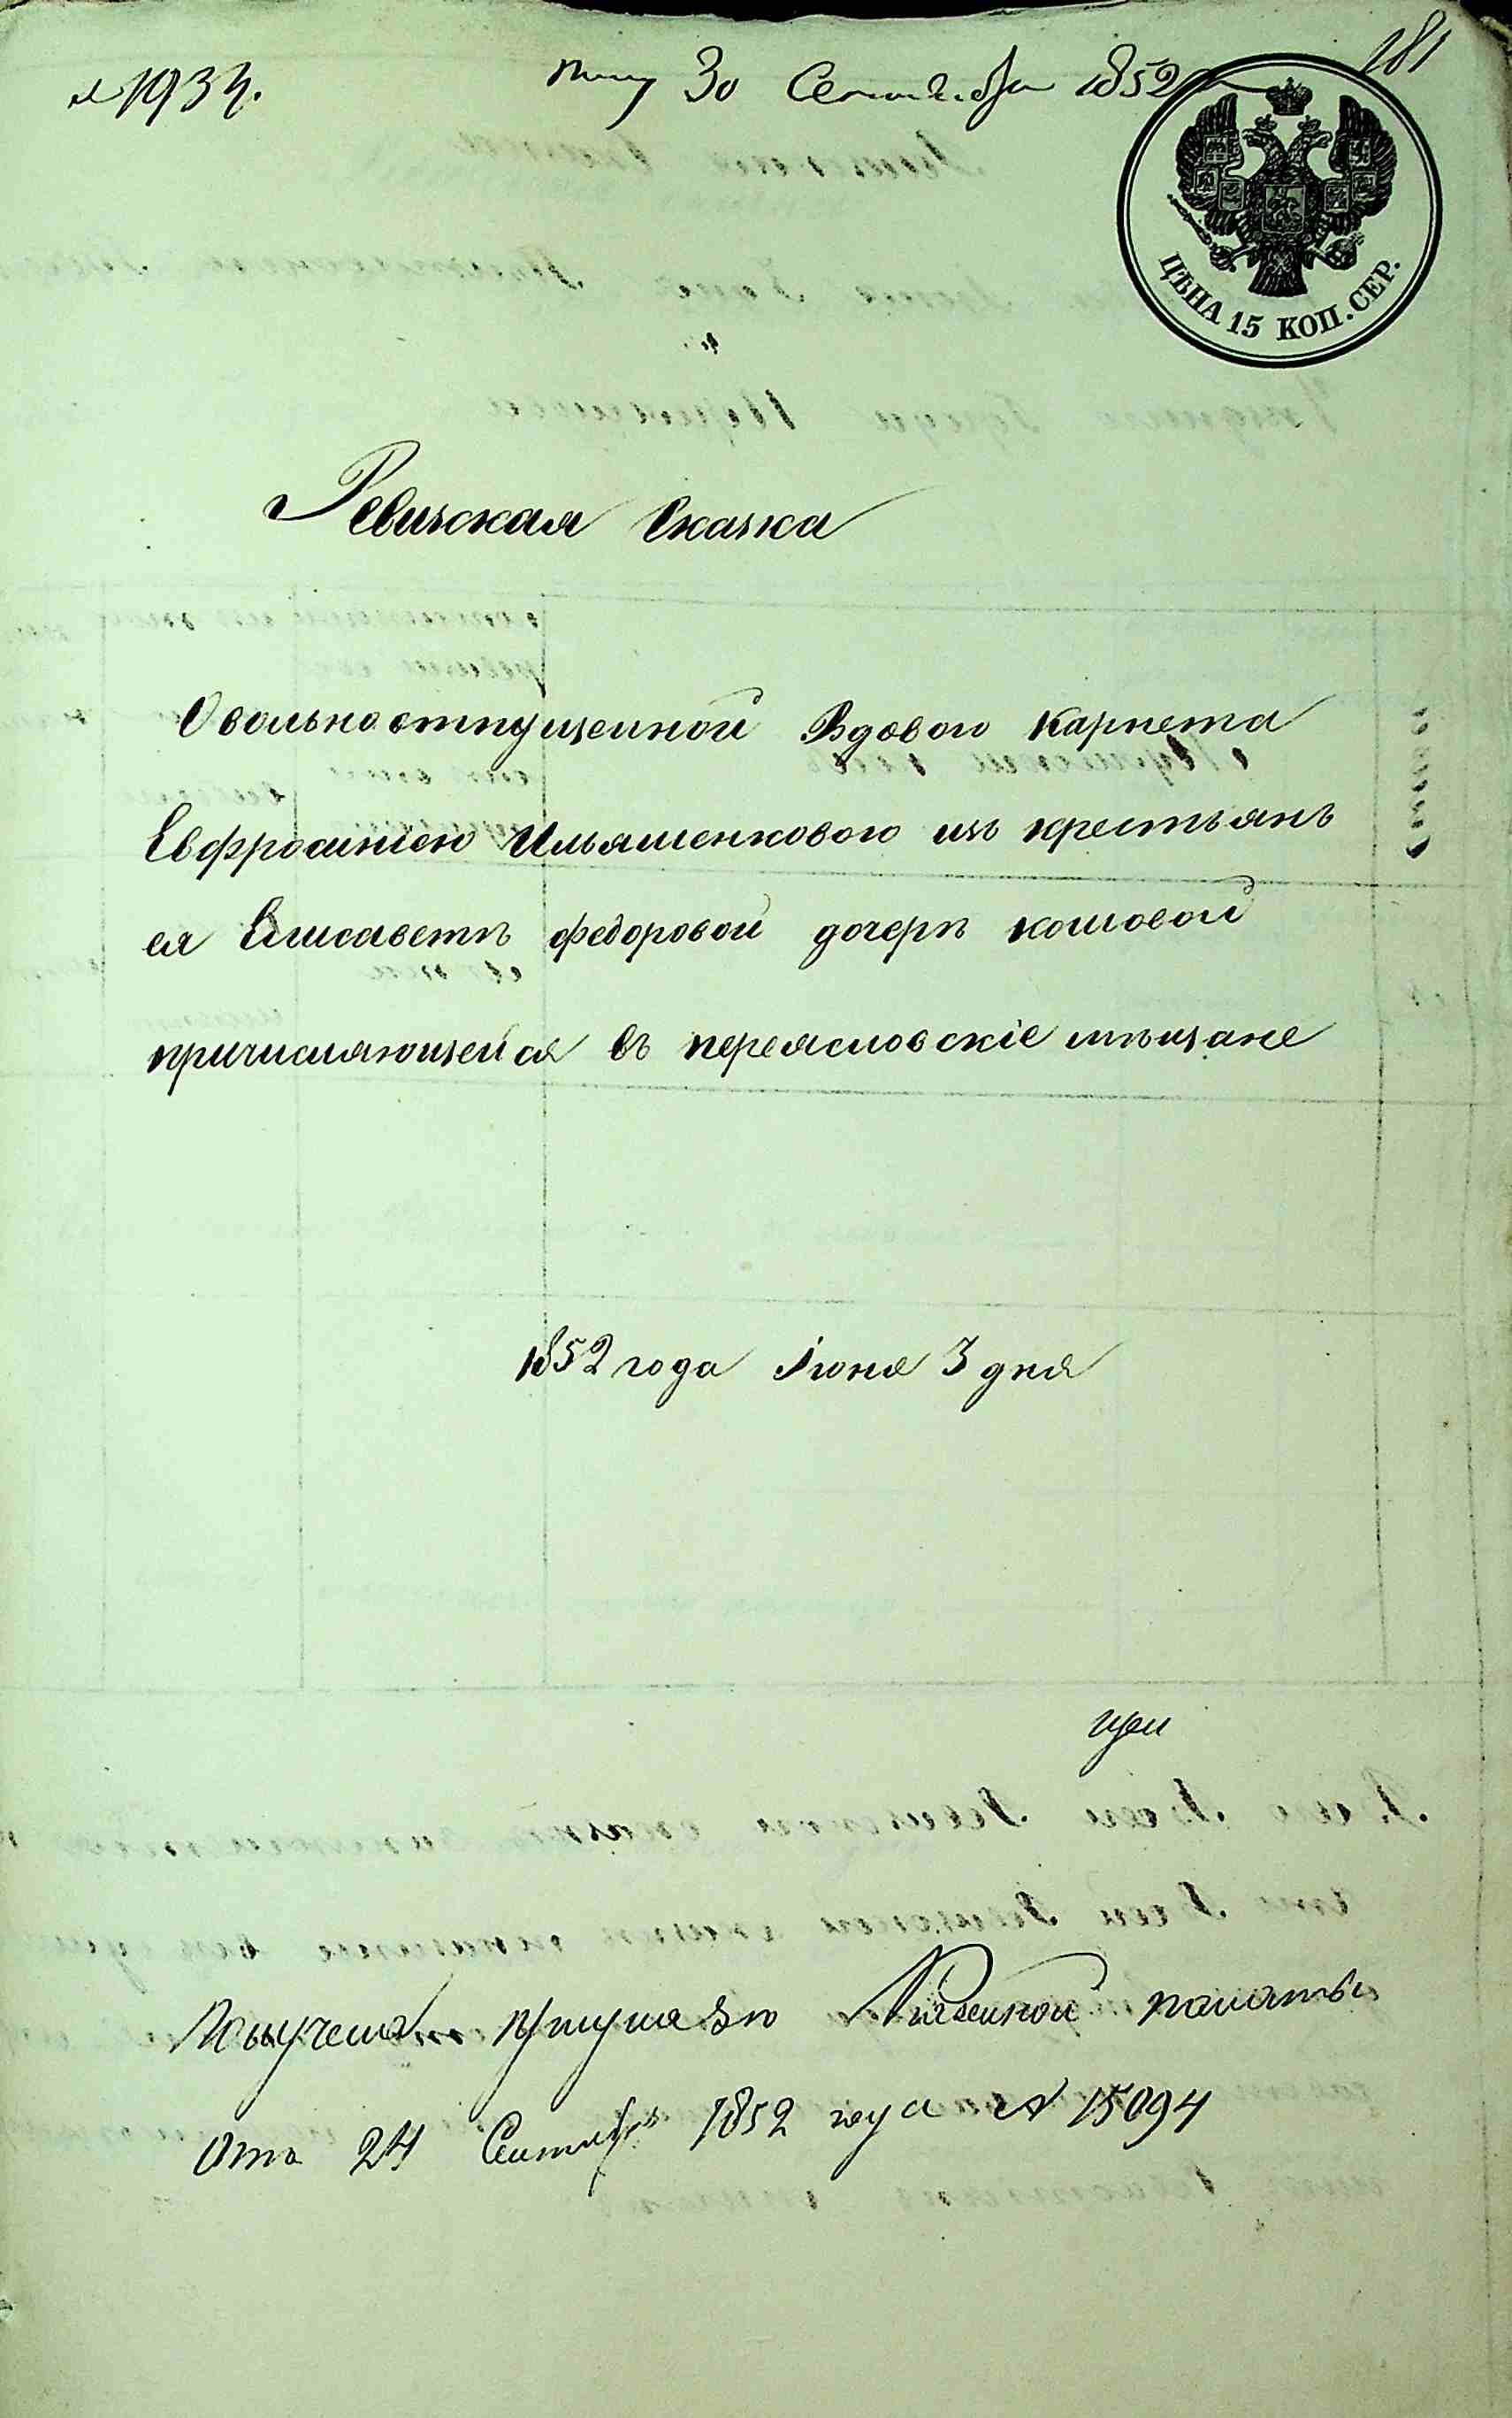 № 1934.
30 Сентября 1852
181
ЦѢНА 15 КОП. СЕР.
Ревизская Сказка
О вольноотпущенной Вдовою Карнета
Евфросиніею Ильяшенковою изъ крестьянъ
ея Елисаветѣ Федоровой дочерѣ кошовой
причисляющейся въ переясловскіе мѣщане
1852 года Іюня 3 дня
при
Получена при указѣ Казенной палаты
Отъ 24 Сентября 1852 года № 15094